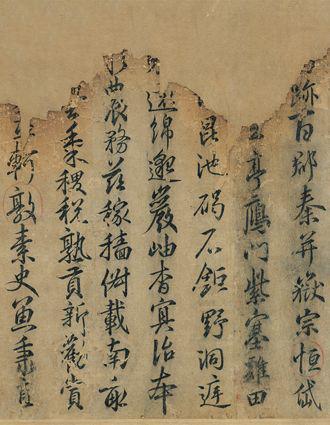 跡百郡秦并嶽宗恒岱
亭鴈門紫塞雞田
昆池碣石鉅野洞庭
遠綿邈巖岫杳冥治本
於農務茲稼穡俶載南畝
黍稷稅熟貢新勸賞
軻敦素史魚秉直